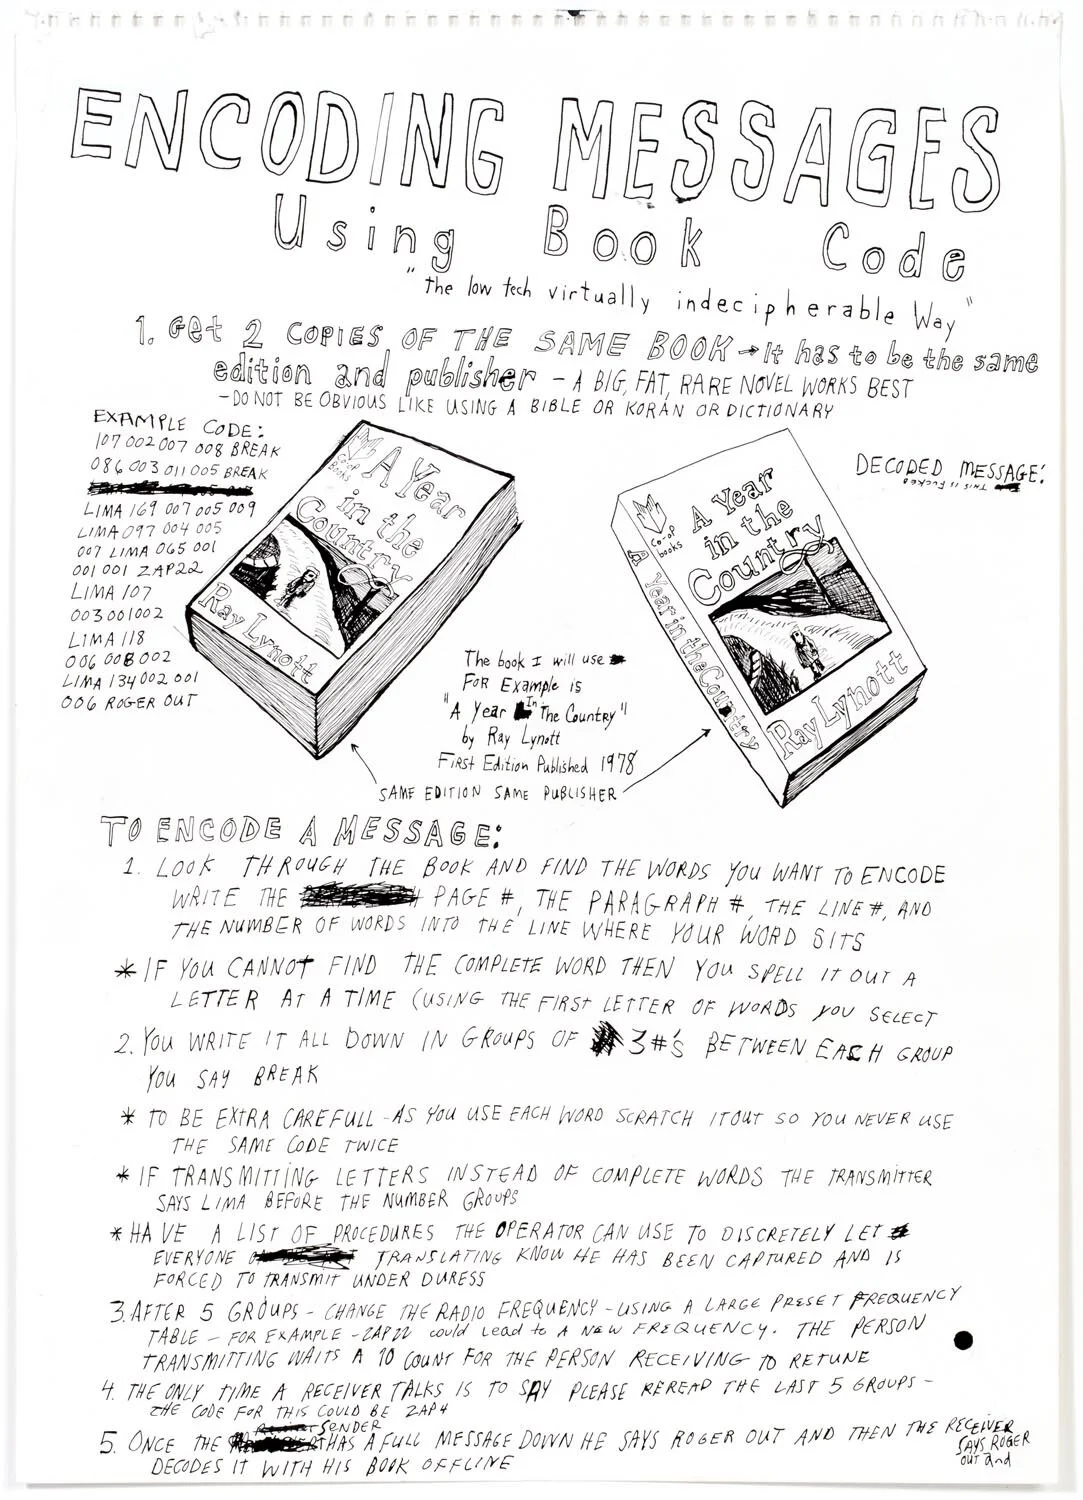 ENCODING MESSAGES
Using Book Code
"the low tech virtually indecipherable Way"
1. Get 2 COPIES OF THE SAME BOOK → It has to be the same
edition and publisher - A BIG, FAT, RARE NOVEL WORKS BEST
- DO NOT BE OBVIOUS LIKE USING A BIBLE OR KORAN OR DICTIONARY
EXAMPLE CODE:
107 002 007 008 BREAK
086 003 011 005 BREAK
LIMA 169 007 005 009
LIMA 097 004 005
007 LIMA 065 001
001 001 ZAP22
LIMA 107
003 001 002
LIMA 118
006 008 002
LIMA 134 002 001
006 ROGER OUT
Co-op
Books
A Year
in the
Country
Ray Lynott
Co-op
books
A Year in the Country
A Year
in the
Country
Ray Lynott
DECODED MESSAGE:
THIS IS FUCKED
The book I will use
FOR Example is
"A Year In The Country"
by Ray Lynott
First Edition Published 1978
SAME EDITION SAME PUBLISHER
TO ENCODE A MESSAGE:
1. LOOK THROUGH THE BOOK AND FIND THE WORDS YOU WANT TO ENCODE
WRITE THE PAGE #, THE PARAGRAPH #, THE LINE #, AND
THE NUMBER OF WORDS INTO THE LINE WHERE YOUR WORD SITS
* IF YOU CANNOT FIND THE COMPLETE WORD THEN YOU SPELL IT OUT A
LETTER AT A TIME (USING THE FIRST LETTER OF WORDS YOU SELECT
2. YOU WRITE IT ALL DOWN IN GROUPS OF 3#'S BETWEEN EACH GROUP
YOU SAY BREAK
* TO BE EXTRA CAREFULL - AS YOU USE EACH WORD SCRATCH IT OUT SO YOU NEVER USE
THE SAME CODE TWICE
* IF TRANSMITTING LETTERS INSTEAD OF COMPLETE WORDS THE TRANSMITTER
SAYS LIMA BEFORE THE NUMBER GROUPS
* HAVE A LIST OF PROCEDURES THE OPERATOR CAN USE TO DISCRETELY LET
EVERYONE TRANSLATING KNOW HE HAS BEEN CAPTURED AND IS
FORCED TO TRANSMIT UNDER DURESS
3. AFTER 5 GROUPS - CHANGE THE RADIO FREQUENCY - USING A LARGE PRESET FREQUENCY
TABLE - FOR EXAMPLE - ZAP22 could Lead to A NEW FREQUENCY. THE PERSON
TRANSMITTING WAITS A 10 COUNT FOR THE PERSON RECEIVING TO RETUNE
4. THE ONLY TIME A RECEIVER TALKS IS TO SAY PLEASE REREAD THE LAST 5 GROUPS -
THE CODE FOR THIS COULD BE ZAP4
SENDER
5. ONCE THE HAS A FULL MESSAGE DOWN HE SAYS ROGER OUT AND THEN THE RECEIVER
SAYS ROGER
OUT and
DECODES IT WITH HIS BOOK OFFLINE